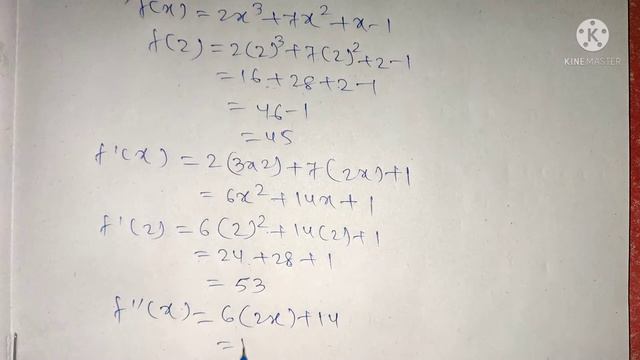 f(x) = 2x³ + 7x² + x - 1
f(2) = 2(2)³ + 7(2)² + 2 - 1
= 16 + 28 + 2 - 1
= 46 - 1
= 45
f'(x) = 2(3x2) + 7(2x) + 1
= 6x² + 14x + 1
f'(2) = 6(2)² + 14(2) + 1
= 24 + 28 + 1
= 53
f''(x) = 6(2x) + 14
= 1
K
KINEMASTER